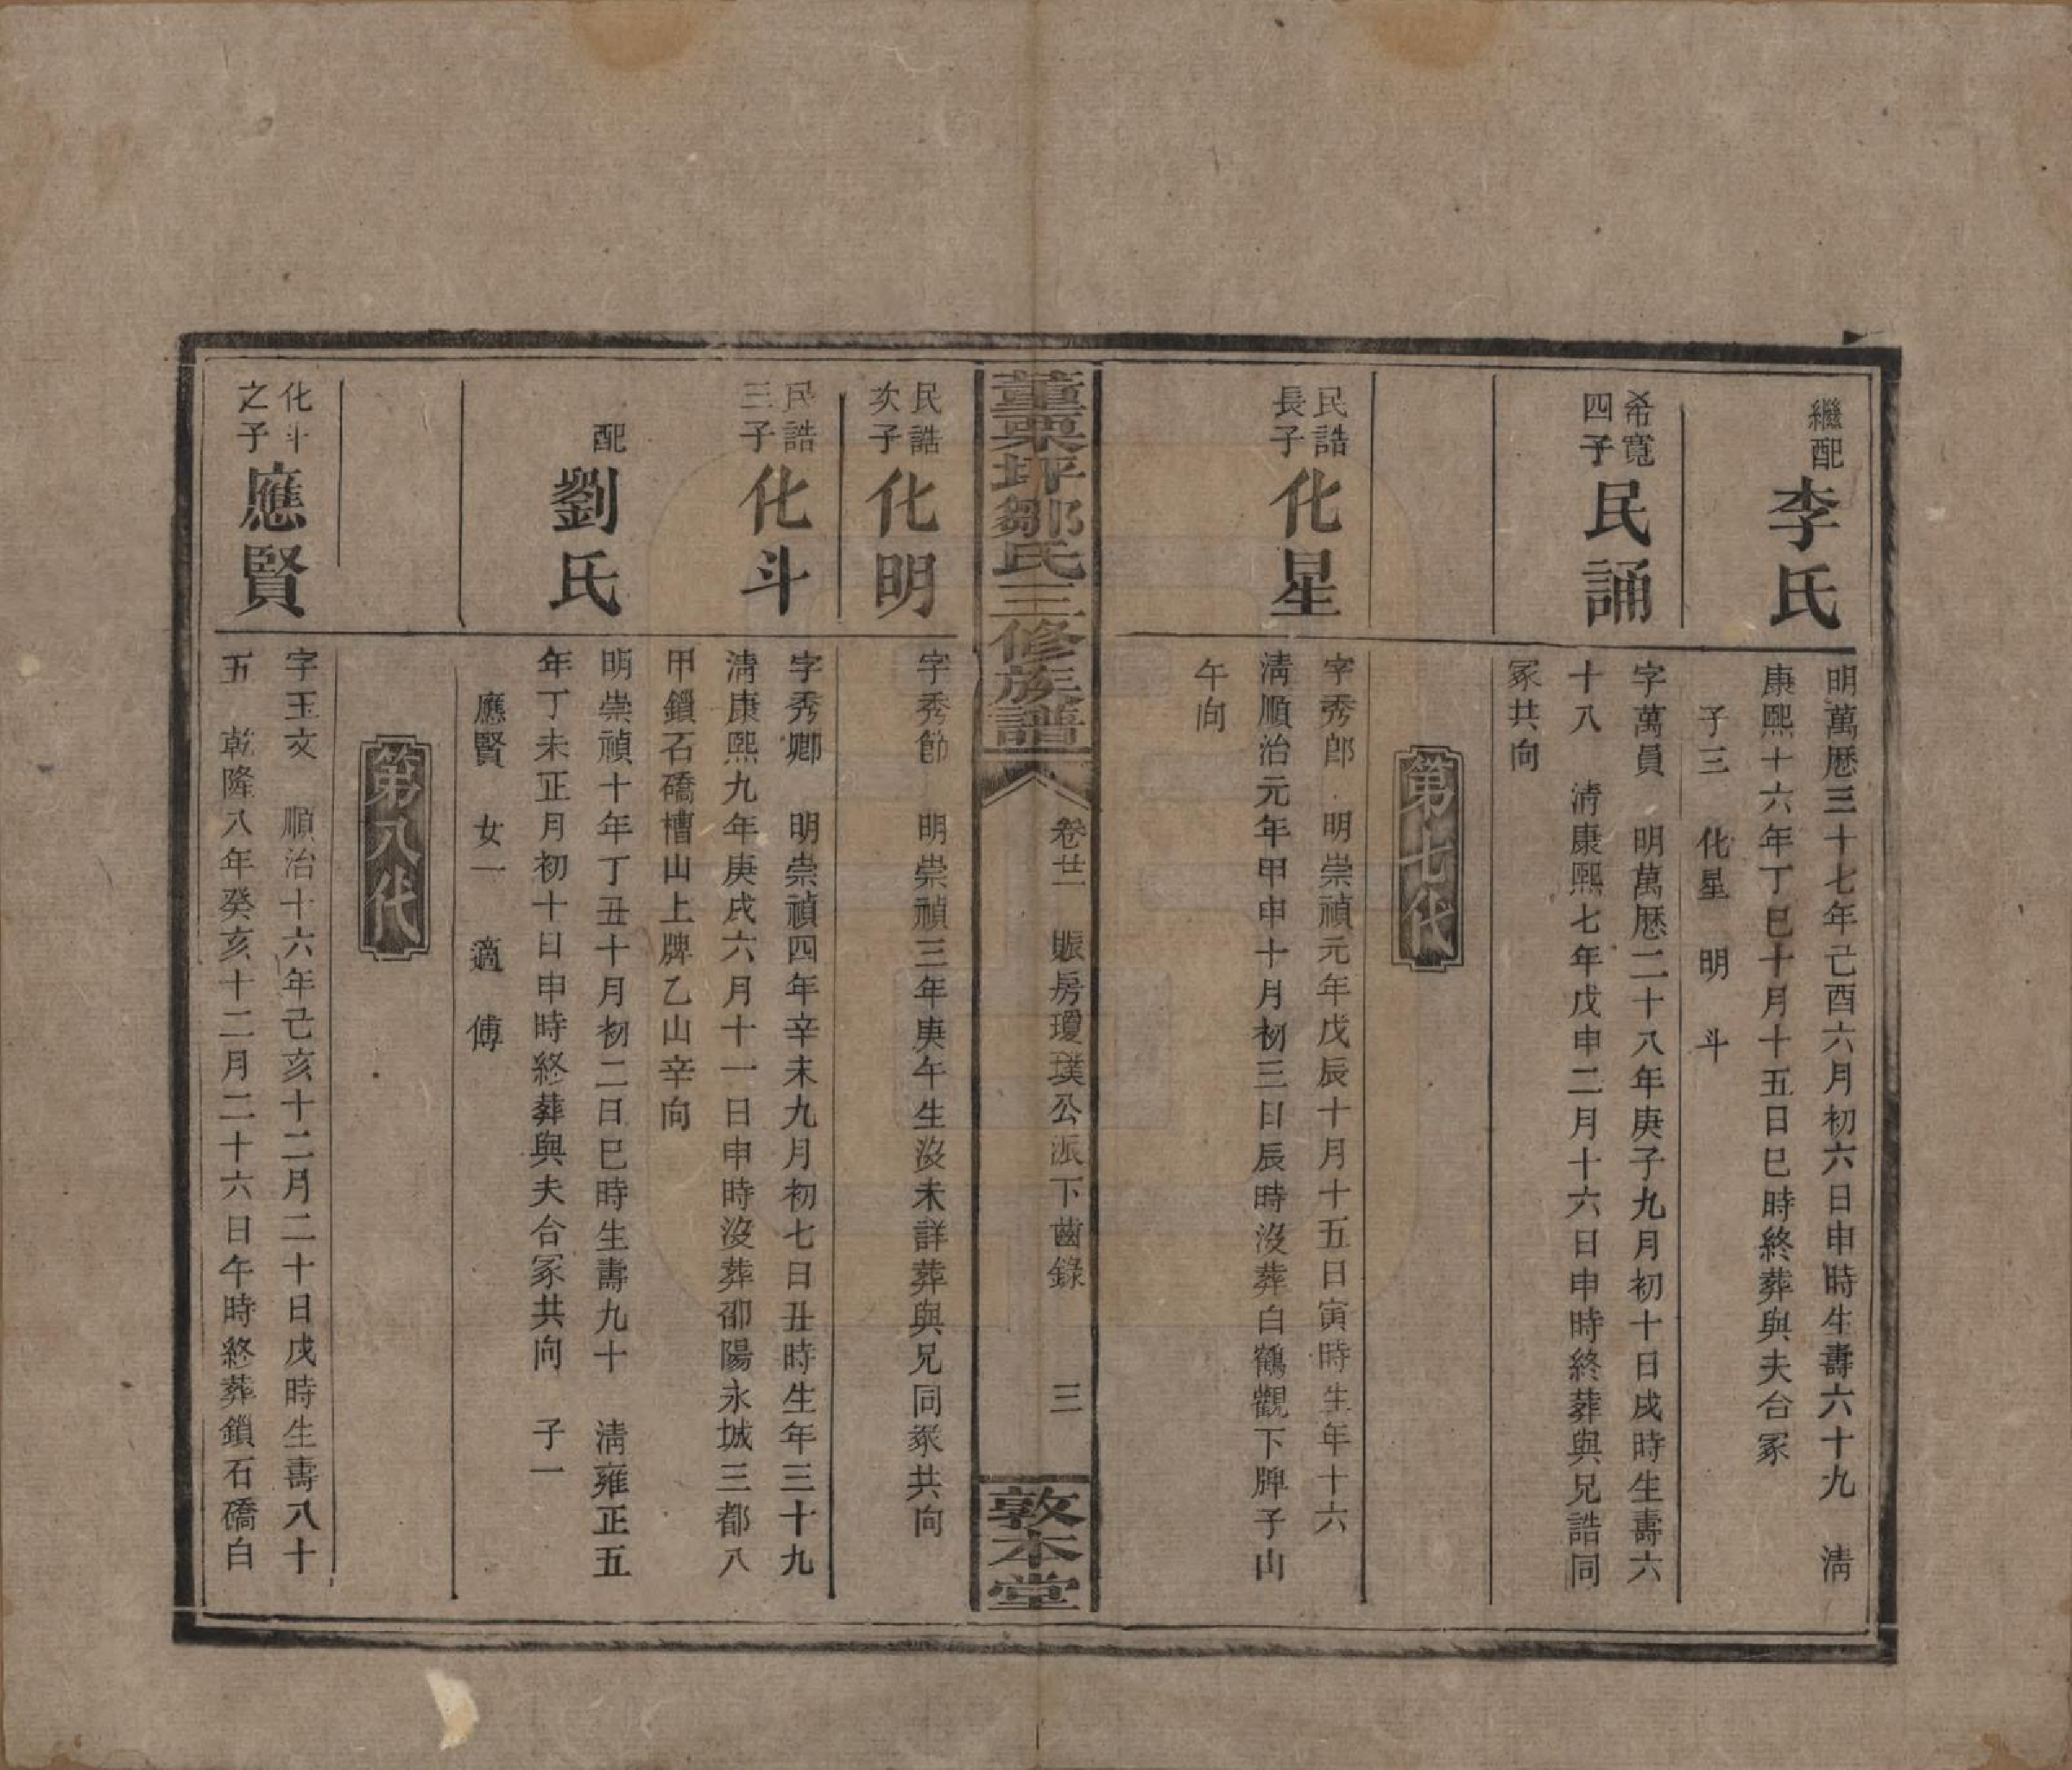 繼配
李氏
明萬厯三十七年己酉六月初六日申時生壽六十九　淸
康熙十六年丁巳十月十五日巳時終葬與夫合冢
子三　化星　明　斗
希寬
四子
民誦
字萬員　明萬厯二十八年庚子九月初十日戌時生壽六
十八　淸康熙七年戊申二月十六日申時終葬與兄誥同
冢共向
第七代
民誥
長子
化星
字秀郎　明崇禎元年戊辰十月十五日寅時生年十六
淸順治元年甲申十月初三日辰時沒葬白鶴觀下牌子山
午向
董栗坪鄒氏三修族譜
卷廿一　賬房瓊璞公派下齒錄　三
敦本堂
民誥
次子
化明
字秀節　明崇禎三年庚午生沒未詳葬與兄同冢共向
民誥
三子
化斗
字秀卿　明崇禎四年辛未九月初七日丑時生年三十九
淸康熙九年庚戌六月十一日申時沒葬邵陽永城三都八
甲鎖石磽槽山上牌乙山辛向
配
劉氏
明崇禎十年丁丑十月初二日巳時生壽九十　淸雍正五
年丁未正月初十日申時終葬與夫合冢共向　子一
應賢　女一　適　傅
第八代
化斗
之子
應賢
字玉文　順治十六年己亥十二月二十日戌時生壽八十
五　乾隆八年癸亥十二月二十六日午時終葬鎖石磽白